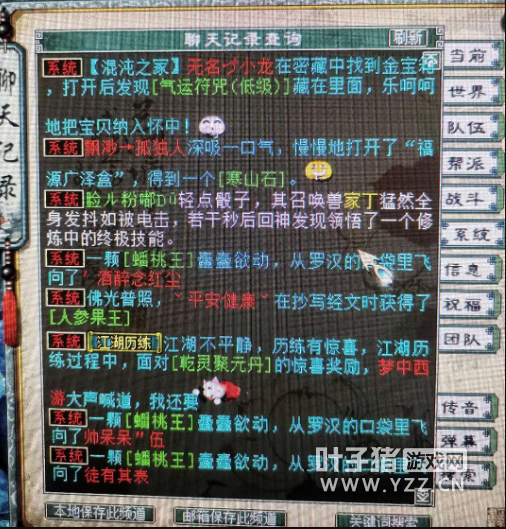 聊天记录查询
刷新
聊天记录
系统【混沌之冢】无名づ小龙在密藏中找到金宝箱
,打开后发现[气运符咒(低级)]藏在里面,乐呵呵
地把宝贝纳入怀中!
系统 飘渺→孤独人深吸一口气,慢慢地打开了“福
源广泽盒”,得到一个[寒山石]。
系统 脸ル粉嘟Dū轻点骰子,其召唤兽家丁猛然全
身发抖如被电击,若干秒后回神发现领悟了一个修
炼中的终极技能。
系统 一颗[蟠桃王]蠢蠢欲动,从罗汉的口袋里飞
向了’酒醉念红尘
系统 佛光普照,ˇ平安健康ˇ在抄写经文时获得了
[人参果王]
系统 江湖历练 江湖不平静,历练有惊喜,江湖历
练过程中,面对[乾灵聚元丹]的惊喜奖励,梦中西
游大声喊道,我还要
系统 一颗[蟠桃王]蠢蠢欲动,从罗汉的口袋里飞
向了帅呆呆”伍
系统 一颗[蟠桃王]蠢蠢欲动,从罗汉的口袋里飞
向了徒有其表
当前
世界
队伍
帮派
战斗
系统
信息
祝福
团队
传音
弹幕
本地保存此频道
邮箱保存此频道
关键词搜索
叶子猪游戏网
WWW.YZZ.CN